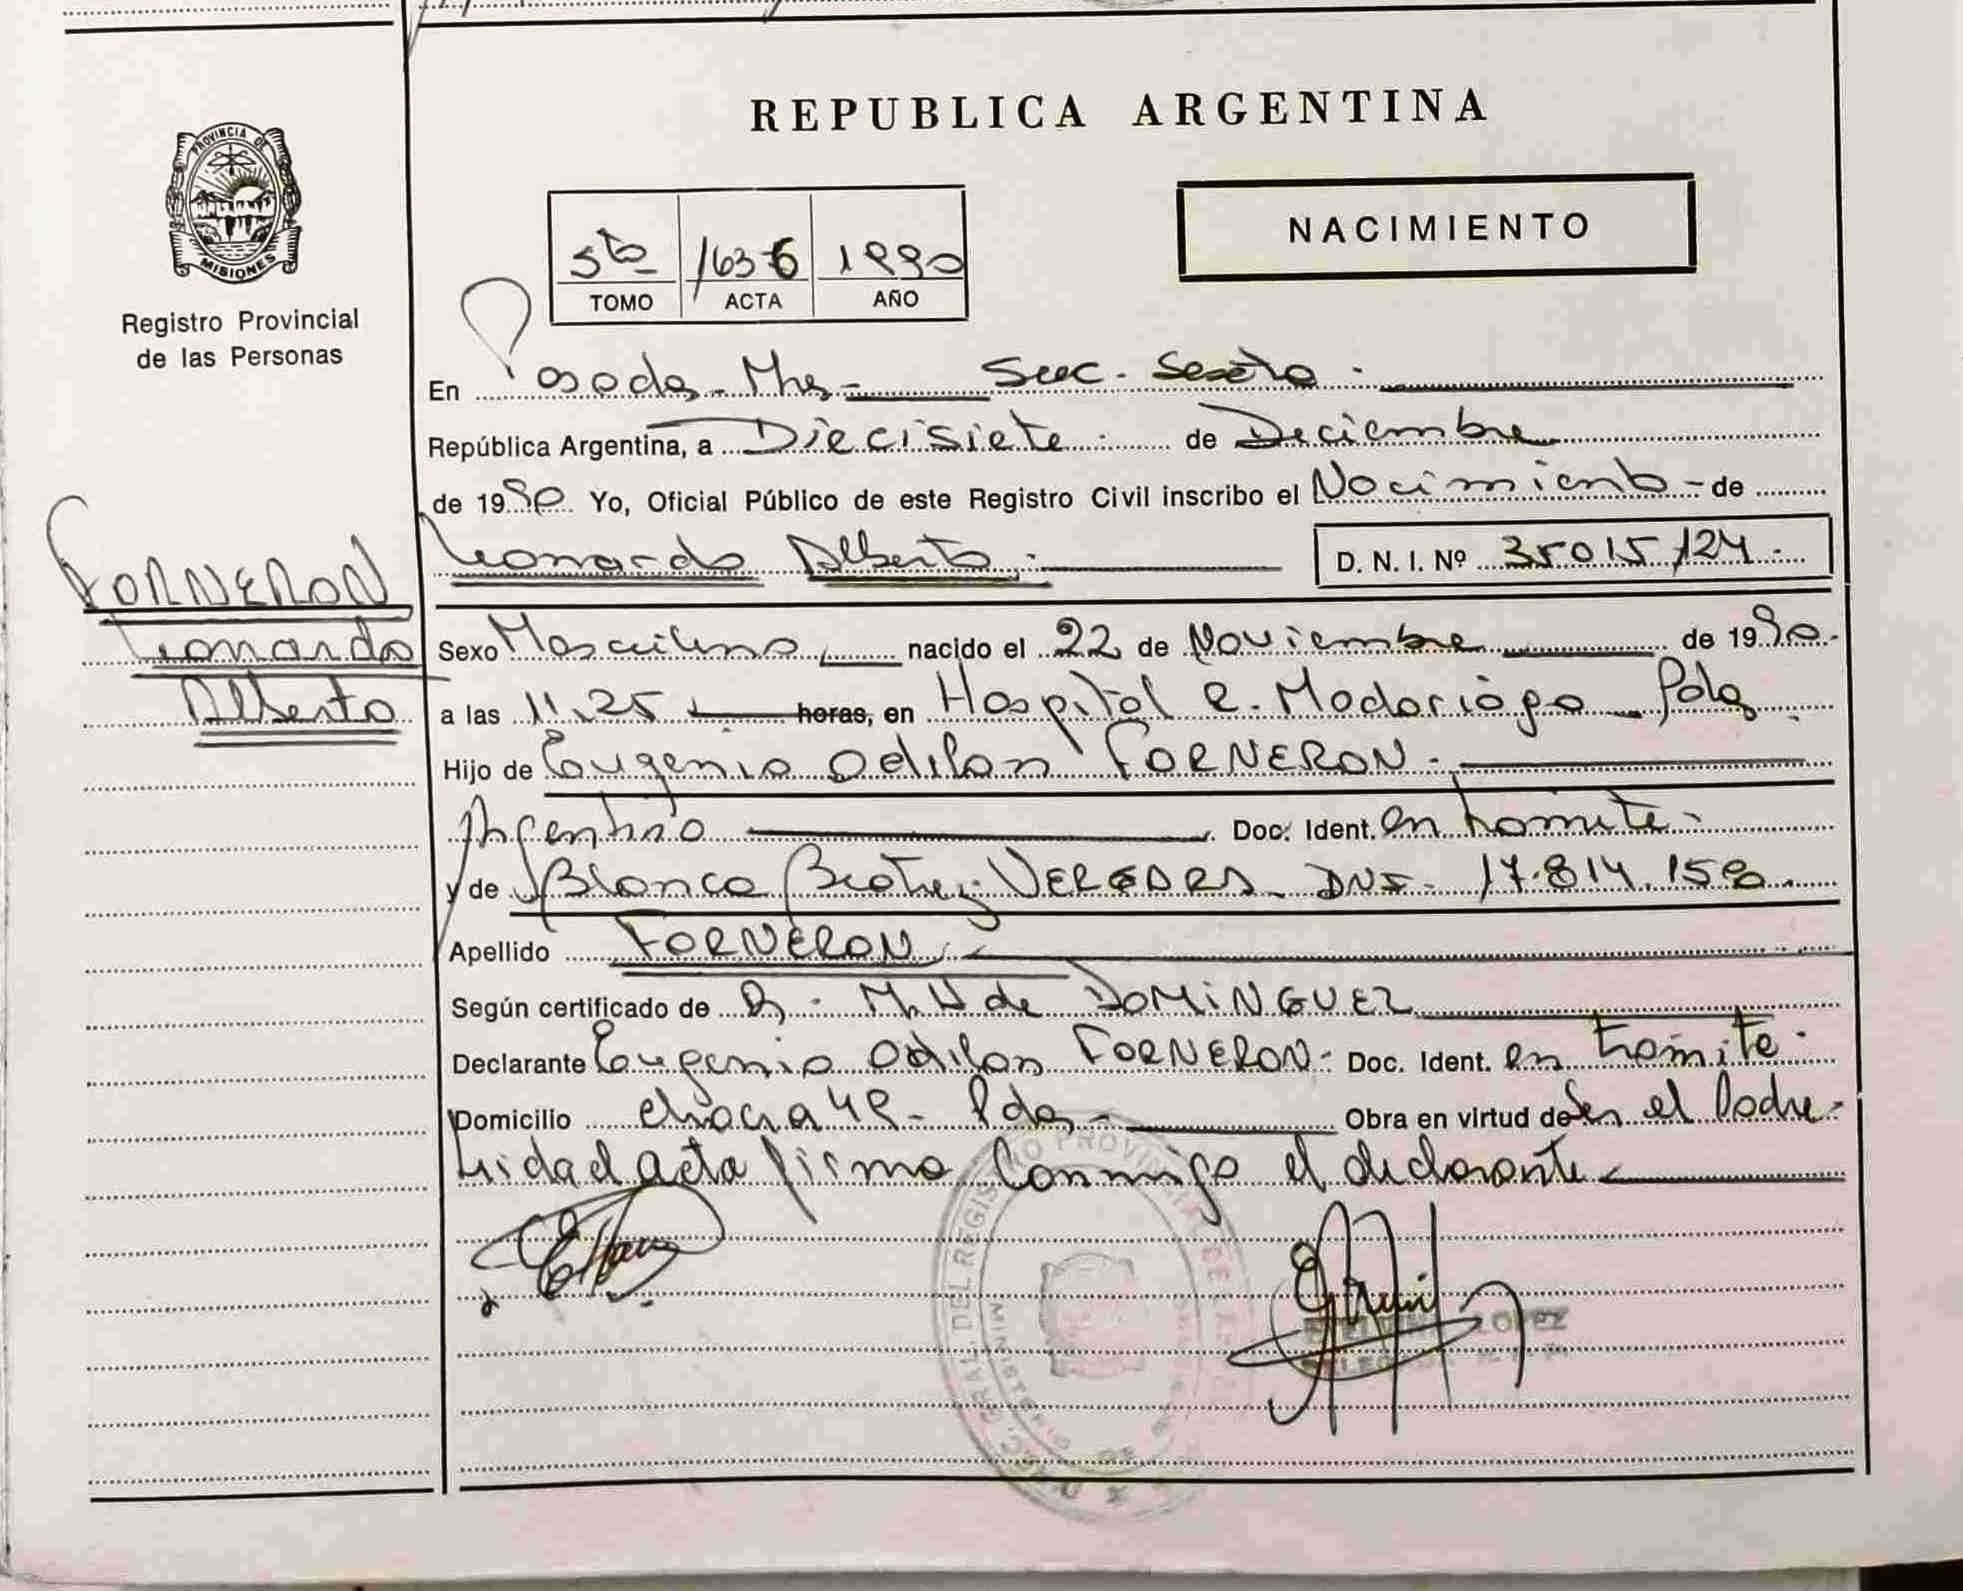 PROVINCIA DE
MISIONES
Registro Provincial
de las Personas
FORNERON
Leonardo
Alberto
REPUBLICA ARGENTINA
NACIMIENTO
5to 1636 1990
TOMO ACTA AÑO
En Posadas - Mnes - Secc. Sexta.
República Argentina, a Diecisiete de Deciembre
de 1990 Yo, Oficial Público de este Registro Civil inscribo el Nacimiento - de
Leonardo Alberto.- D. N. I. Nº 35015124.-
Sexo Masculino nacido el 22 de Noviembre de 1990.-
a las 11,25 horas, en Hospital R. Madariaga - Pdas
Hijo de Eugenio Odilon FORNERON.-
Argentino Doc. Ident. en tramite -
y de Blanca Beatriz DNI - 17.814.150.
Apellido FORNERON
Según certificado de DOMINGUEZ
Declarante Eugenio Odilon FORNERON - Doc. Ident. en tramite.
Domicilio chacra 49 - Pdas - Obra en virtud de Ser el Padre -
acta firma conmigo el declarante
REGISTRO PROVINCIAL DE LAS
LOPEZ